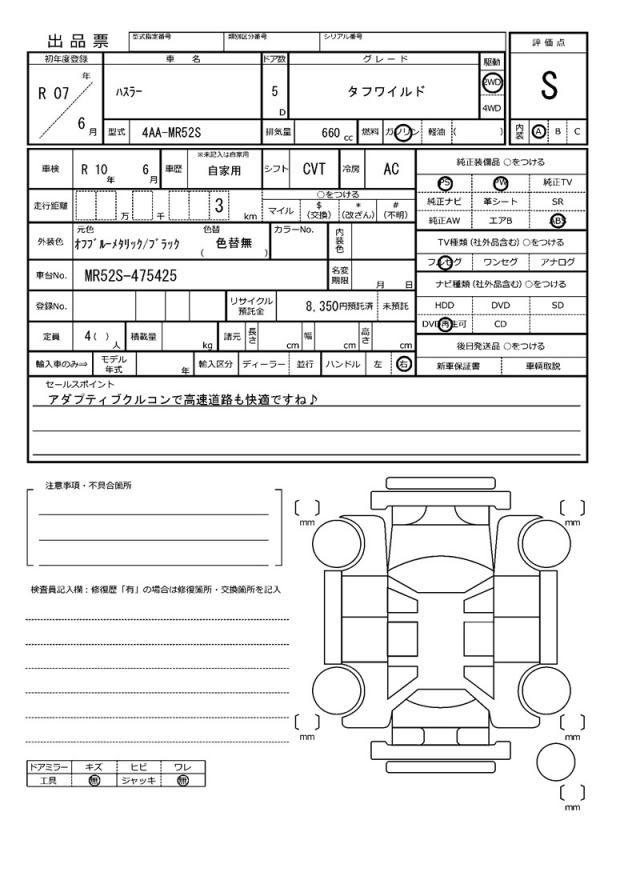 出品票 型式指定番号 類別区分番号 シリアル番号
評価点
初年度登録 車名 ドア数 グレード 駆動
R 07 年 6 月 ハスラー 5 D タフワイルド 2WD 4WD S
型式 4AA-MR52S 排気量 660 cc 燃料 ガソリン 軽油 ( ) 内装 A B C
車検 R 10 年 6 月 車歴 ※未記入は自家用 自家用 シフト CVT 冷房 AC
純正装備品 ○をつける
PS PW 純正TV
純正ナビ 革シート SR
純正AW エアB ABS
走行距離 万 千 3 km
○をつける
マイル $(交換) *(改ざん) #(不明)
外装色 元色 オフブルーメタリック/ブラック 色替 色替無 ( ) カラーNo. 内装色
TV種類 (社外品含む) ○をつける
フルセグ ワンセグ アナログ
車台No. MR52S-475425 名変期限 月 日
ナビ種類 (社外品含む) ○をつける
HDD DVD SD
DVD再生可 CD
登録No. リサイクル預託金 8,350円預託済 未預託
定員 4 ( ) 人 積載量 kg 諸元 長さ cm 幅 cm 高さ cm
後日発送品 ○をつける
新車保証書 車輌取説
輸入車のみ⇒ モデル年式 年 輸入区分 ディーラー 並行 ハンドル 左 右
セールスポイント
アダプティブクルコンで高速道路も快適ですね♪
注意事項・不具合箇所
検査員記入欄：修復歴「有」の場合は修復箇所・交換箇所を記入
mm
mm
mm
mm
mm
ドアミラー キズ ヒビ ワレ
工具 無 ジャッキ 無